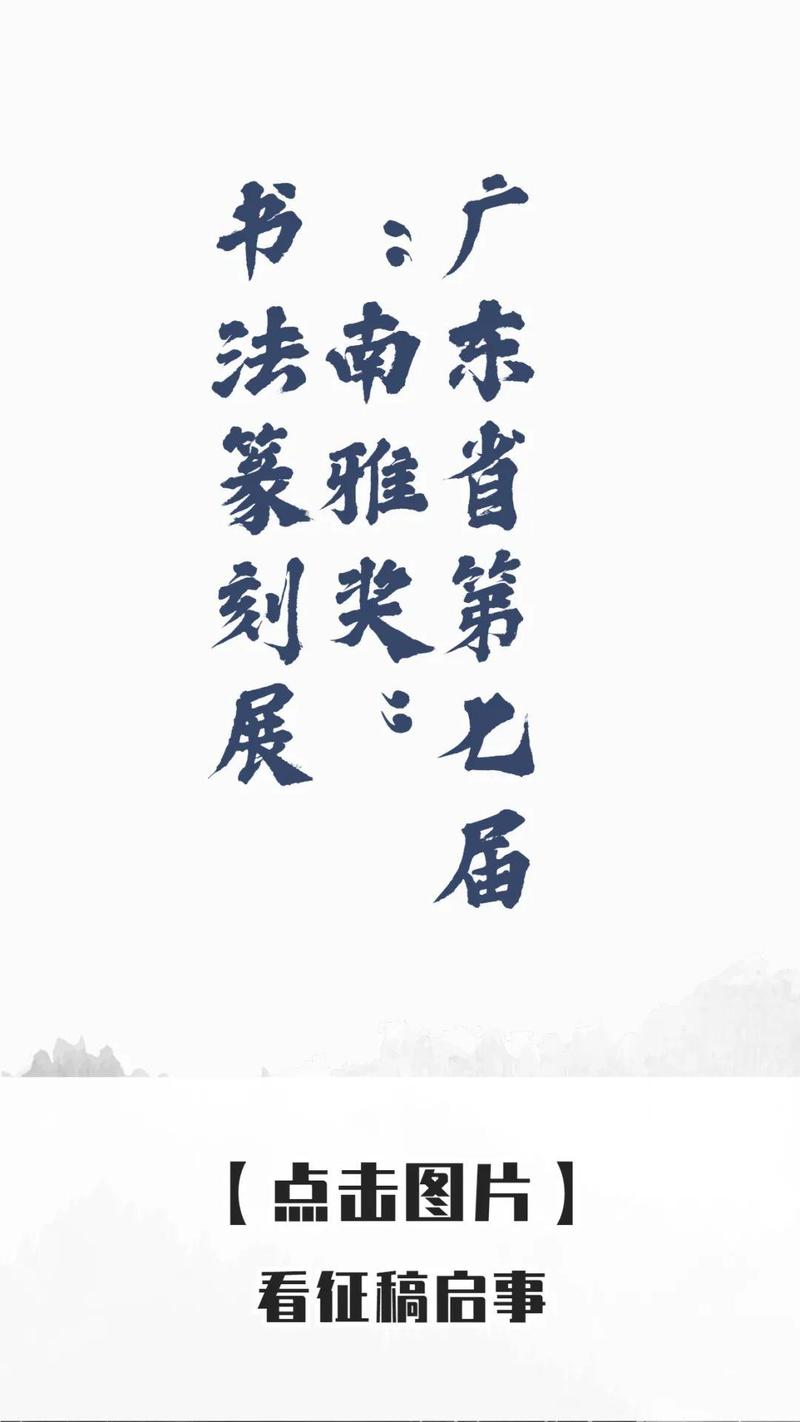 广东省第七届
“南雅奖”
书法篆刻展
【点击图片】
看征稿启事